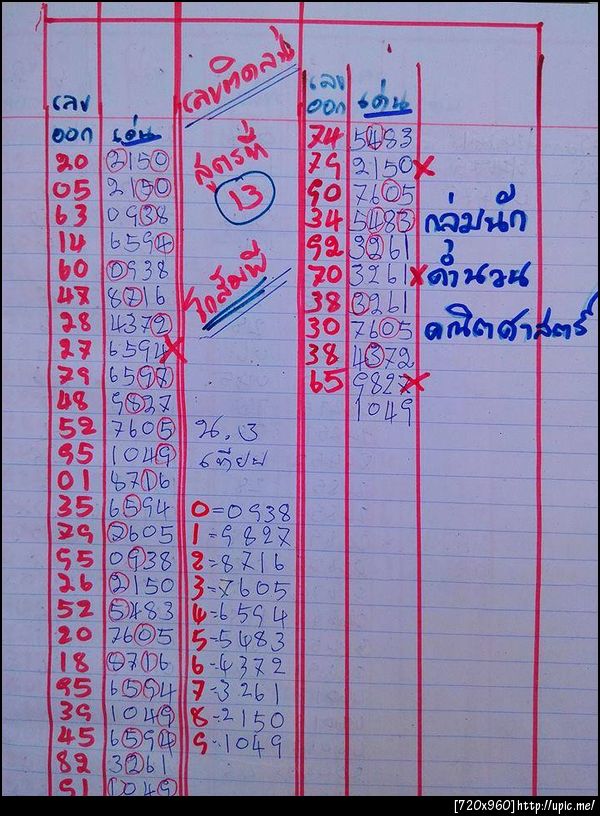 เลข
ออก เด่น
20 2150
05 2150
63 0938
14 6594
60 0938
47 8716
28 4372
27 6594 X
79 6597
48 9827
52 7605
95 1049
01 8716
35 6594
79 2605
95 0938
26 2150
52 5483
20 7605
18 8716
95 6594
39 1049
45 6594
82 3261
91 1049
สูตรที่
13
น.3
เทียบ
0=0938
1=9827
2=8716
3=7605
4=6594
5=5483
6=4372
7=3261
8=2150
9=1049
เลข
ออก เด่น
74 5483
79 2150 X
90 7605
34 5483
92 3261
70 3261 X
38 3261
30 7605
38 4372
65 9827 X
1049
กลุ่มนัก
คำนวน
คณิตศาสตร์
[720x960]http://upic.me/